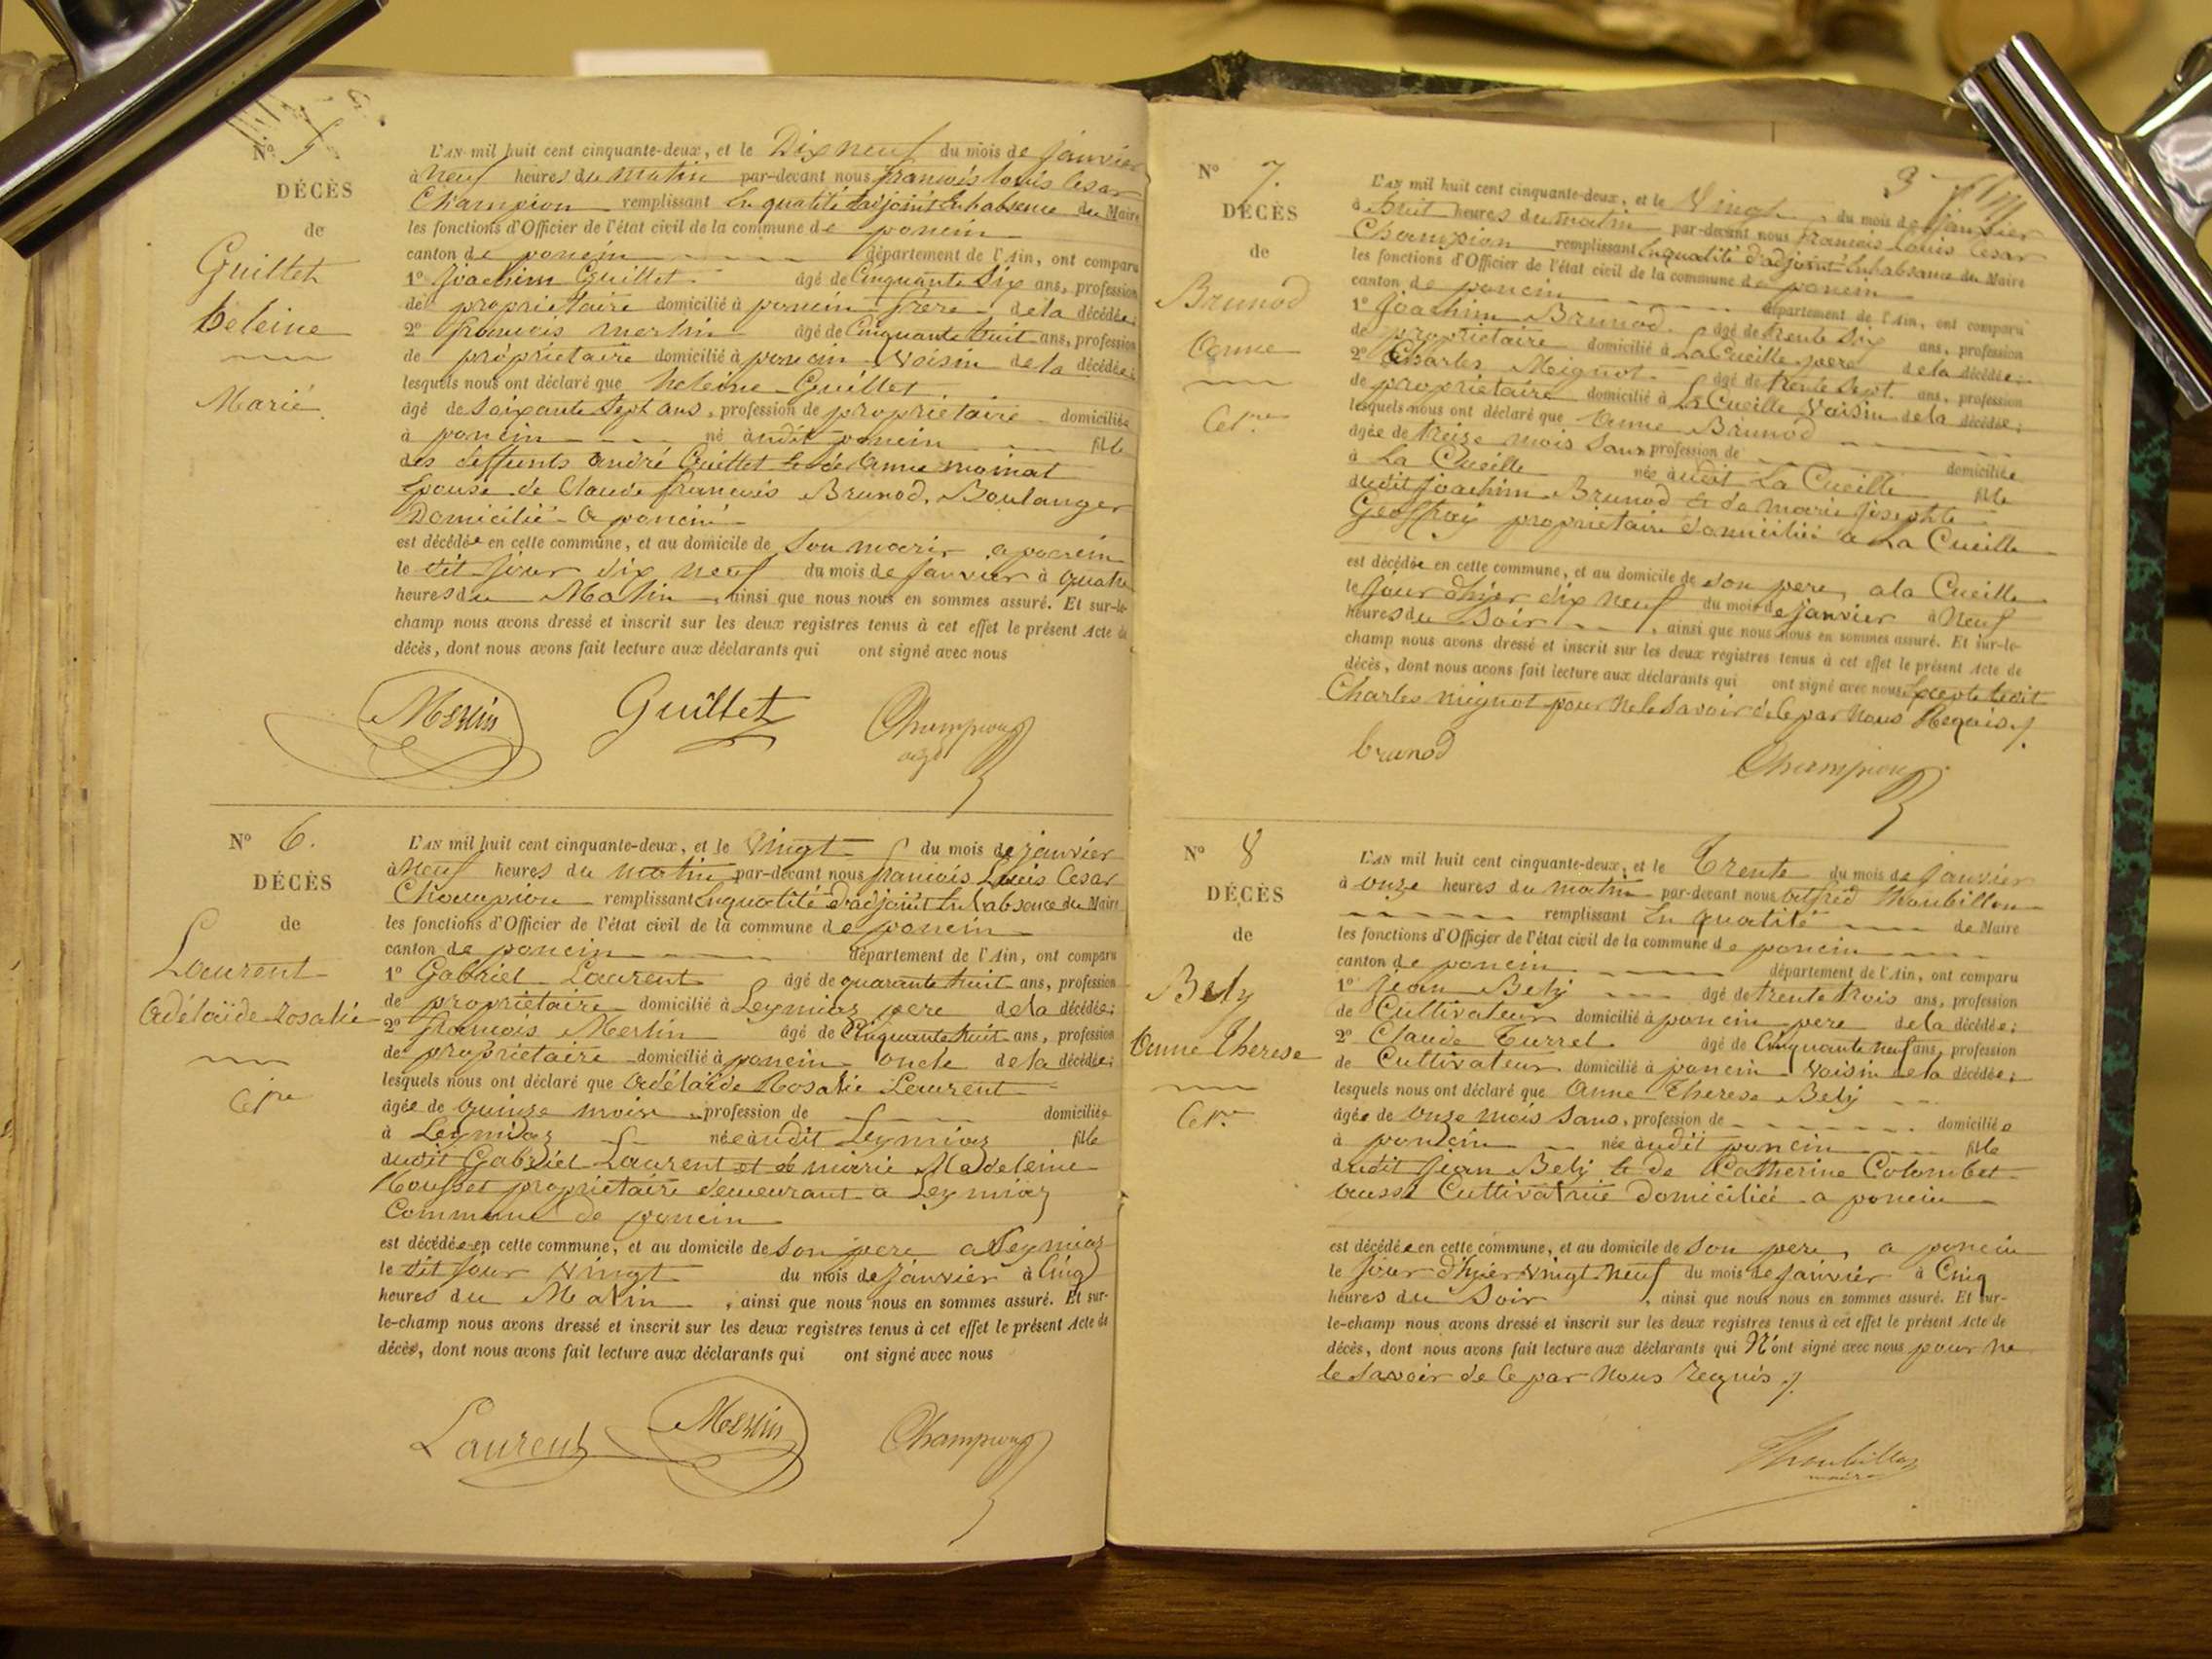 Nº 5
DÉCÈS
de
Guillet
heleine
Marié
L'AN mil huit cent cinquante-deux, et le Dix neuf du mois de janvier
à Neuf heures du Matin par-devant nous francois louis Cesar
Champion remplissant En qualité d'adjoint En l'absence du Maire
les fonctions d'Officier de l'état civil de la commune de poncin
canton de poncin département de l'Ain, ont comparu
1º Joachim Guillet âgé de Cinquante Six ans, profession
de propriétaire domicilié à poncin frere de la décédée;
2º francois merlin âgé de Cinquante huit ans, profession
de propriétaire domicilié à poncin Voisin de la décédée;
lesquels nous ont déclaré que heleine Guillet
âgé de Soixante Sept ans, profession de propriétaire domiciliée
à poncin né audit poncin fille
des deffunts andré Guillet et de Anne moinat
Epouse de Claude francois Brunod, Boulanger
Domicilié a poncin
est décédée en cette commune, et au domicile de Son marir a poncin
le dit jour dix neuf du mois de janvier à quatre
heures du Matin, ainsi que nous nous en sommes assuré. Et sur-le-
champ nous avons dressé et inscrit sur les deux registres tenus à cet effet le présent Acte de
décès, dont nous avons fait lecture aux déclarants qui ont signé avec nous
Merlin Guillet Champion
adjt
Nº 6.
DÉCÈS
de
Laurent
adélaïde rosalie
L'AN mil huit cent cinquante-deux, et le Vingt du mois de janvier
à neuf heures du matin par-devant nous francois Louis Cesar
Champion remplissant En qualité d'adjoint En l'absence du Maire
les fonctions d'Officier de l'état civil de la commune de poncin
canton de poncin département de l'Ain, ont comparu
1º Gabriel Laurent âgé de quarante huit ans, profession
de propriétaire domicilié à Leymiaz pere de la décédée;
2º francois Merlin âgé de Cinquante huit ans, profession
de propriétaire domicilié à poncin oncle de la décédée;
lesquels nous ont déclaré que adélaïde Rosalie Laurent
âgée de quinze mois profession de domiciliée
à Leymiaz née audit Leymiaz fille
dudit Gabriel Laurent et de marie Madeleine
Rousset propriétaire demeurant a Leymiaz
Commune de poncin
est décédée en cette commune, et au domicile de Son pere a Leymiaz
le dit jour Vingt du mois de janvier à Cinq
heures du Matin, ainsi que nous nous en sommes assuré. Et sur-
le-champ nous avons dressé et inscrit sur les deux registres tenus à cet effet le présent Acte de
décès, dont nous avons fait lecture aux déclarants qui ont signé avec nous
Laurent Merlin Champion
3
Nº 7.
DÉCÈS
de
Brunod
Anne
L'AN mil huit cent cinquante-deux, et le Vingt du mois de janvier
à huit heures du matin par-devant nous francois louis Cesar
Champion remplissant En qualité d'adjoint En l'absence du Maire
les fonctions d'Officier de l'état civil de la commune de poncin
canton de poncin département de l'Ain, ont comparu
1º Joachim Brunod âgé de trente Six ans, profession
de propriétaire domicilié à La Cueille pere de la décédée;
2º Charles Mignot âgé de trente Sept ans, profession
de propriétaire domicilié à La Cueille Voisin de la décédée;
lesquels nous ont déclaré que Anne Brunod
âgée de treize mois Sans profession de domiciliée
à La Cueille née audit La Cueille fille
dudit Joachim Brunod et de marie josephte
Geoffray propriétaire domiciliés a La Cueille
est décédée en cette commune, et au domicile de son pere, a la Cueille
le jour d'hyer dix neuf du mois de janvier à Neuf
heures du Soir, ainsi que nous nous en sommes assuré. Et sur-le-
champ nous avons dressé et inscrit sur les deux registres tenus à cet effet le présent Acte de
décès, dont nous avons fait lecture aux déclarants qui ont signé avec nous Excepté ledit
Charles mignot pour ne le Savoir de ce par Nous Requis ./.
brunod Champion
Nº 8
DÉCÈS
de
Bely
Anne Therese
L'AN mil huit cent cinquante-deux, et le Trente du mois de janvier
à onze heures du matin par-devant nous alfred Thoubillon
remplissant En qualité de Maire
les fonctions d'Officier de l'état civil de la commune de poncin
canton de poncin département de l'Ain, ont comparu
1º jean Bely âgé de trente trois ans, profession
de Cultivateur domicilié à poncin pere de la décédée;
2º Claude Turrel âgé de Cinquante neuf ans, profession
de Cultivateur domicilié à poncin Voisin de la décédée;
lesquels nous ont déclaré que Anne Therese Bely
âgée de onze mois Sans, profession de domiciliée
à poncin née audit poncin fille
dudit jean Bely et de Catherine Colombet
aussi Cultivatrice Domiciliée a poncin
est décédée en cette commune, et au domicile de Son pere, a poncin
le jour d'hyer vingt neuf du mois de janvier à Cinq
heures du Soir, ainsi que nous nous en sommes assuré. Et sur-
le-champ nous avons dressé et inscrit sur les deux registres tenus à cet effet le présent Acte de
décès, dont nous avons fait lecture aux déclarants qui N'ont signé avec nous pour ne
le Savoir de ce par Nous requis ./.
Thoubillon
maire